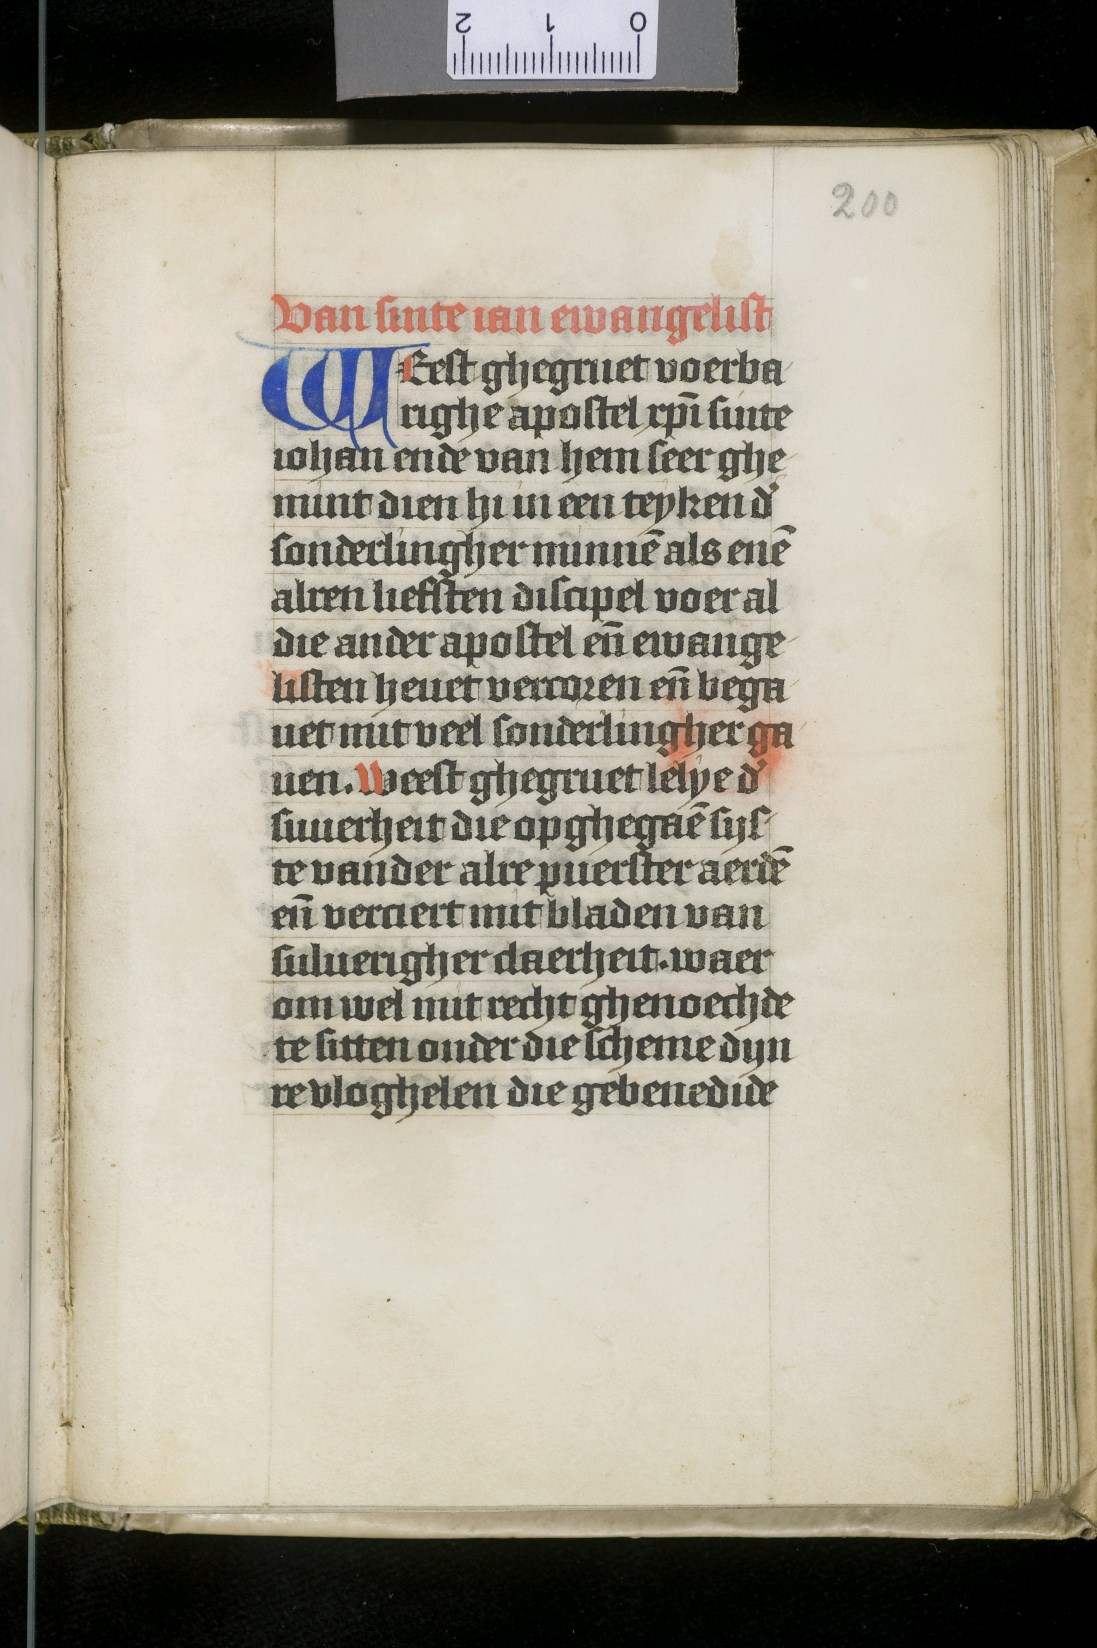 2 1 0
200
Van sinte ian ewangelist
WEest ghegruet voerba
righe apostel xp̄i sinte
iohan ende van hem seer ghe
mint dien hi in een teyken d'
sonderlingher minnē als enē
alren liefsten discipel voer al
die ander apostel en̄ ewange
listen heuet vercoren en̄ bega
uet mit veel sonderlingher ga
uen. Weest ghegruet lelye d'
suuerheit die opghegaē sijs
te vander alre puerster aerdē
en̄ verciert mit bladen van
suluerigher claerheit. waer
om wel mit recht ghenoechde
te sitten onder die scheme dijn
re vloghelen die gebenedide